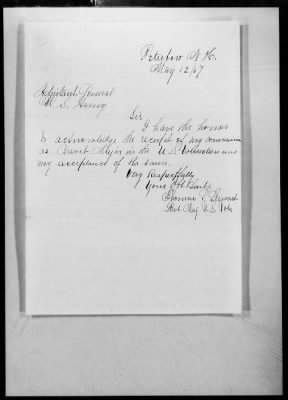 N. H.
May 12/67
Adjutant General
U. S. Army
Sir
I have the honor
to acknowledge the receipt of my commission
as Brevet Major in the U. S. Volunteers and
my acceptance of the same.
Very Respectfully
Your Obt Servt
Thomas
Bvt Maj U. S. Vols